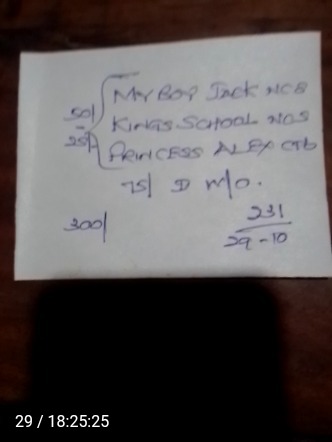 MY BOY JACK NCB
50/ KINGS SCHOOL NCS
25/ PRINCESS ALEX CTB
75/ D W/O.
300/ 231
29-10
29 / 18:25:25